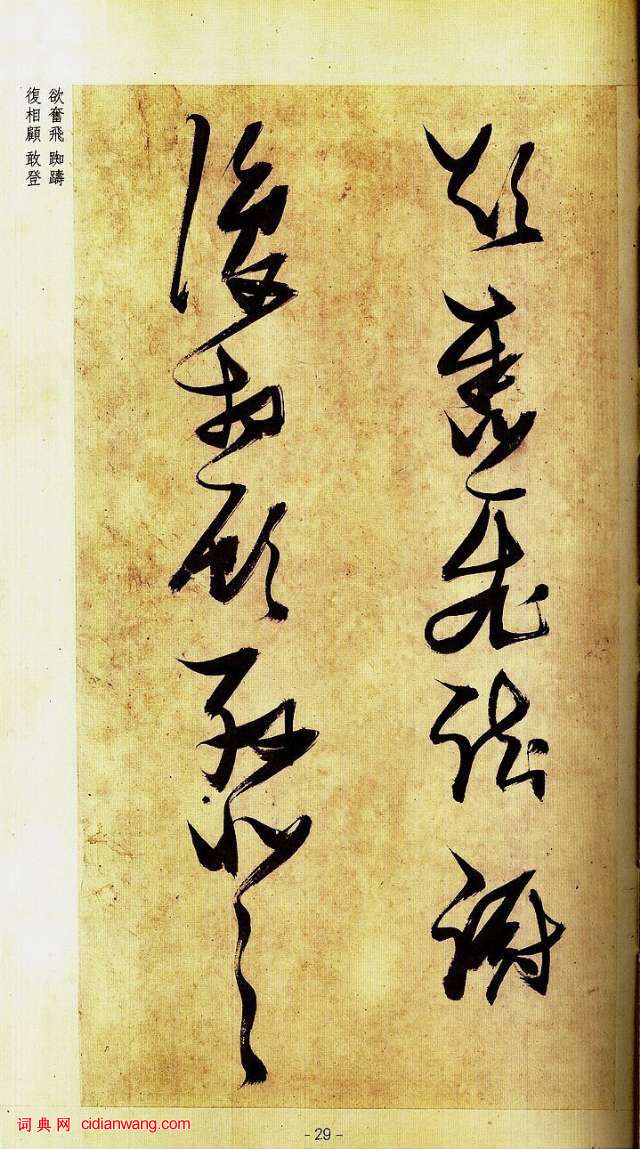 欲奮飛踟躕
復相顧敢登
欲奮飛 踟躕
復相顧 敢登
词典网 cidianwang.com
- 29 -